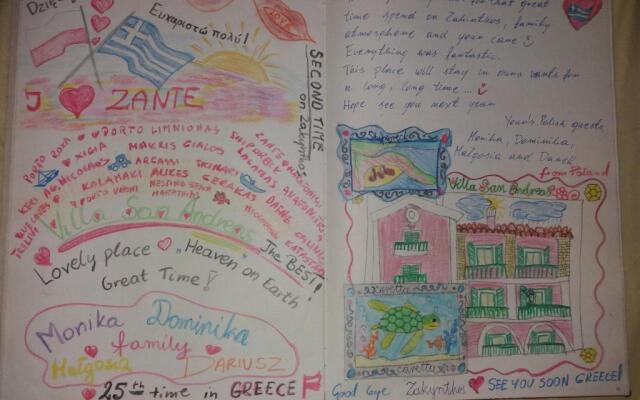 Dzię
Ευχαριστώ πολύ!
SECOND TIME
on Zakynthos
I ZANTE
PORTO LIMNIONAS
PORTO ROXA
XIGIA
MAKRIS GIALOS
SHIPWREK
ZANTE
KERI
AG. NICOLAOS
ARGASSI
SKINARI
LAGANAS
KALAMAKI
ALIKES
GERAKAS
DAFNE
PORTO VROMI
Villa San Andreas
Lovely place "Heaven" on Earth
The BEST!
Great Time!
Monika Dominika
family
Małgosia DARIUSZ
25th time in GREECE
for that great
time spend on Zakinthos, family
atmosphere and your cane :)
Everything was fantastic.
This place will stay in ours for
a long, long time...
Hope see you next year
Your's Polish guests,
Monika, Dominika,
Małgosia and Darek
from Poland
Villa San Andreas
caretta
caretta
Good bye Zakynthos SEE YOU SOON GREECE!